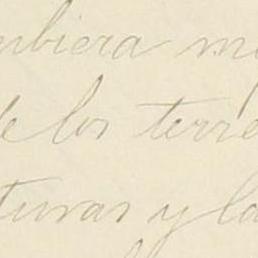 ubiera m
de los terre
turas y la